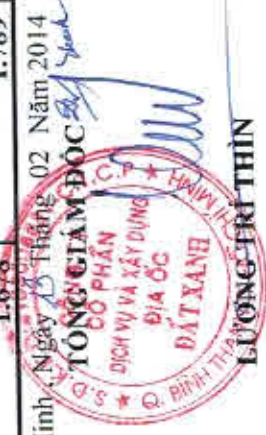 1.678 1.789
inh, Ngày 13 Tháng 02 Năm 2014
TỔNG GIÁM ĐỐC
S.Đ.K
C.P
CỔ PHẦN
DỊCH VỤ VÀ XÂY DỰNG
ĐỊA ỐC
ĐẤT XANH
Q. BÌNH THẠNH
HỒ CHÍ MINH
LƯƠNG TRÍ THÌN